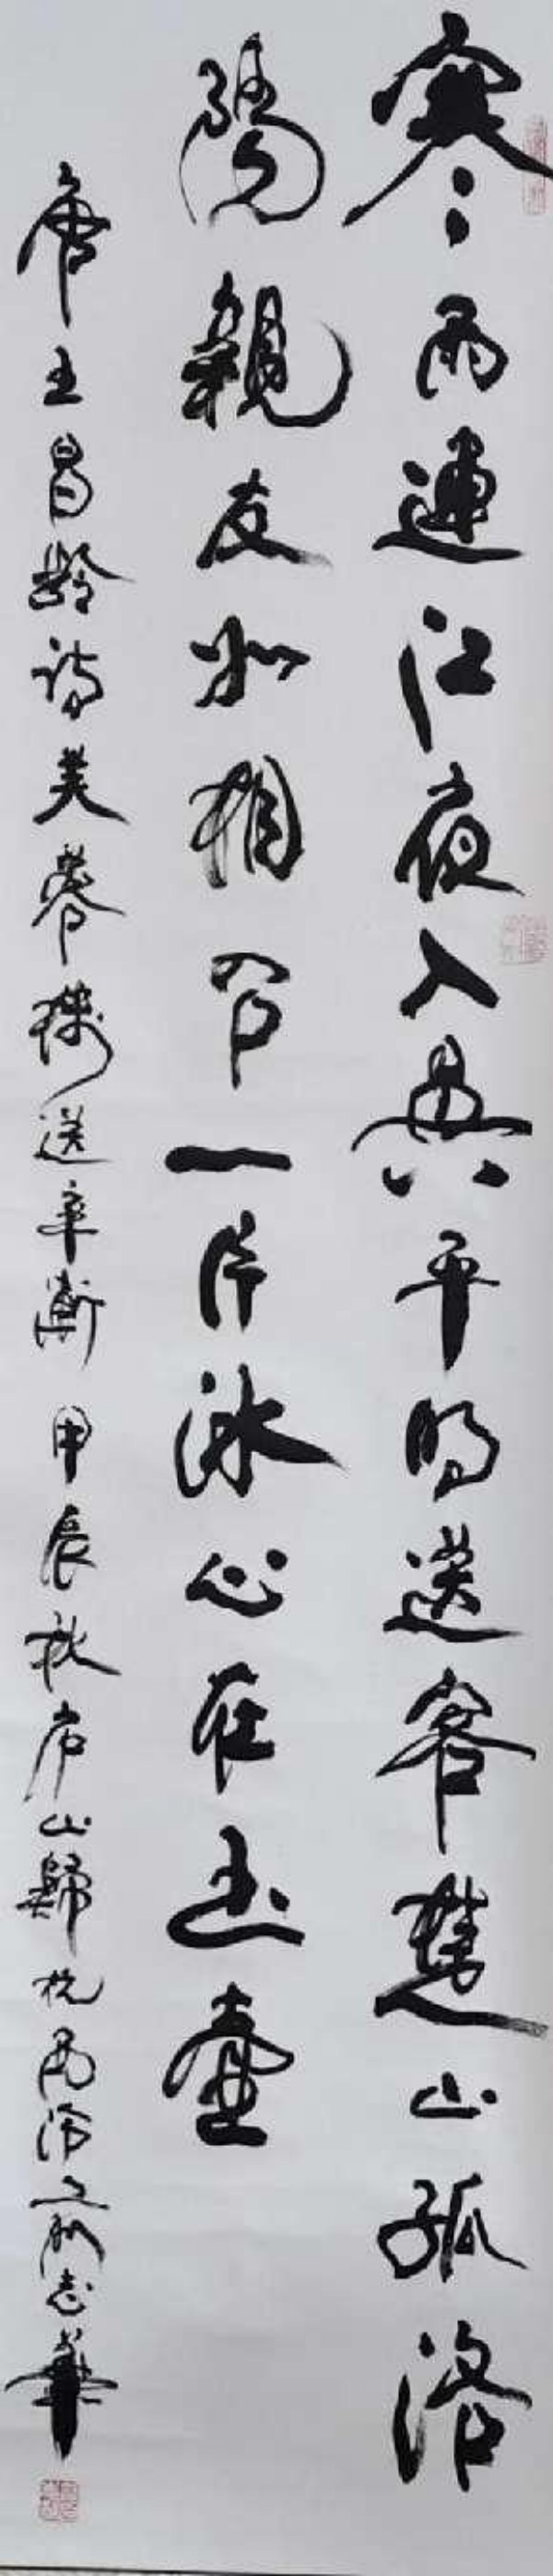 寒雨連江夜入吳平明送客楚山孤洛
陽親友如相問一片冰心在玉壺
唐王昌齡詩芙蓉樓送辛漸 甲辰秋庐山歸杭西泠志華